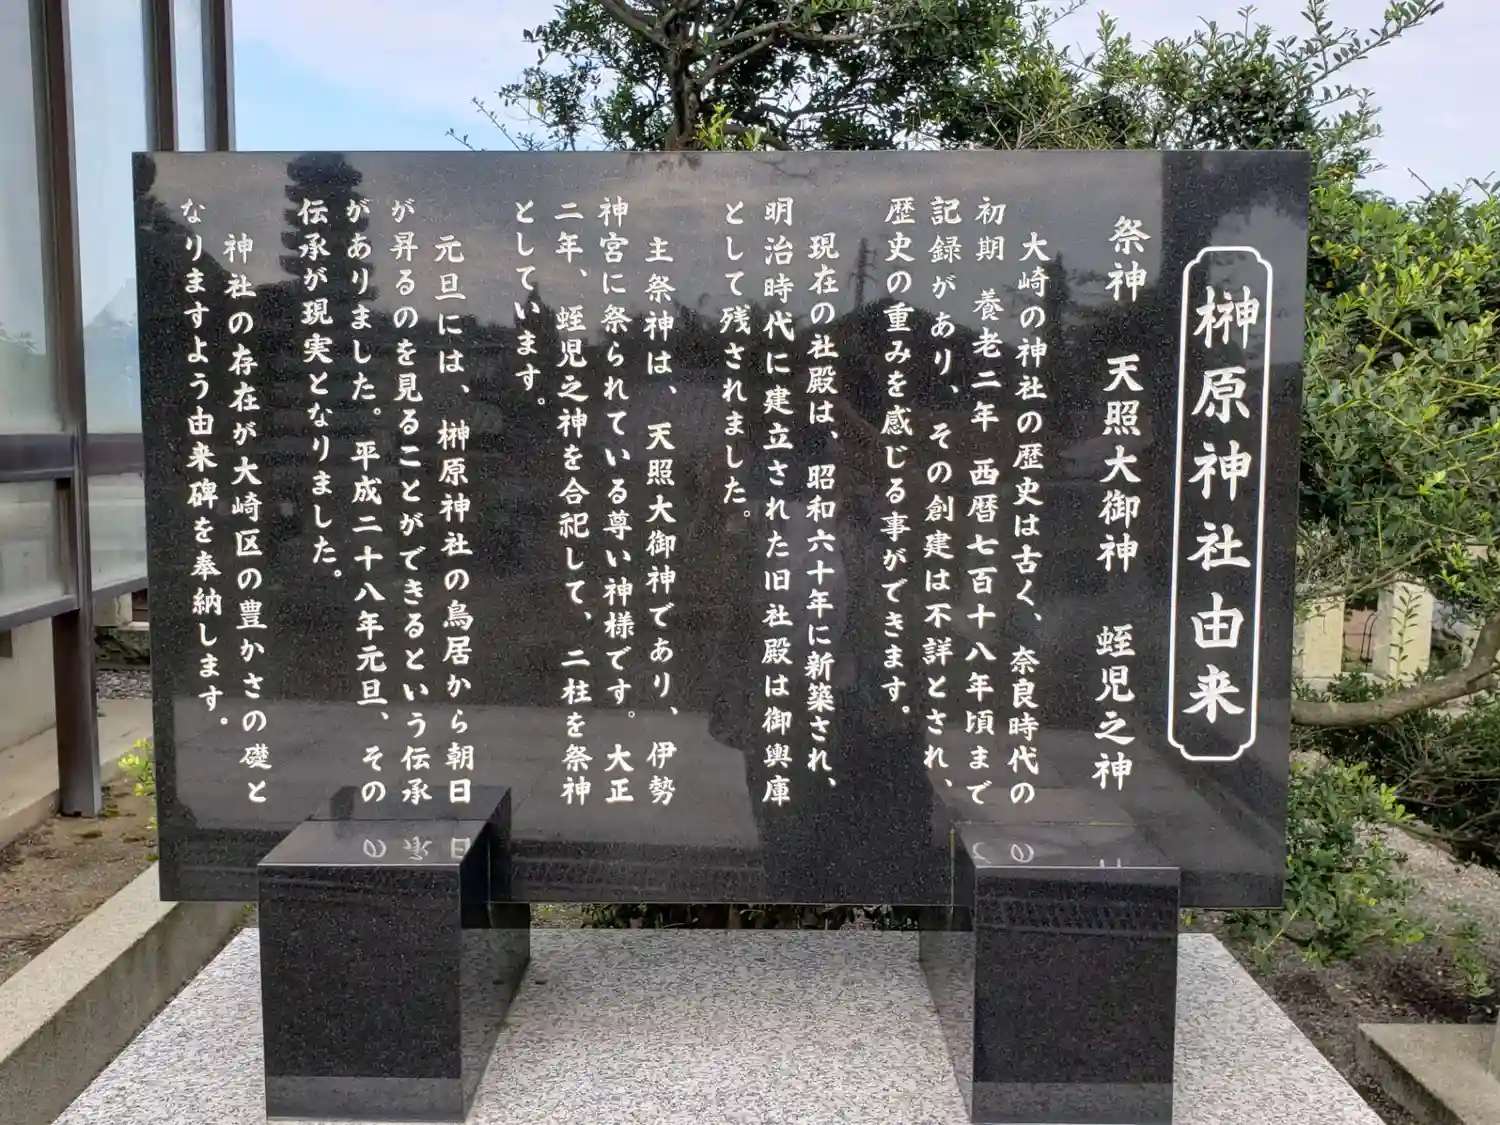 榊原神社由来
祭神　天照大御神　蛭児之神
大崎の神社の歴史は古く、奈良時代の
初期　養老二年　西暦七百十八年頃まで
記録があり、その創建は不詳とされ、
歴史の重みを感じる事ができます。
現在の社殿は、昭和六十年に新築され、
明治時代に建立された旧社殿は御輿庫
として残されました。
主祭神は、天照大御神であり、伊勢
神宮に祭られている尊い神様です。大正
二年、蛭児之神を合祀して、二柱を祭神
としています。
元旦には、榊原神社の鳥居から朝日
が昇るのを見ることができるという伝承
がありました。平成二十八年元旦、その
伝承が現実となりました。
神社の存在が大崎区の豊かさの礎と
なりますよう由来碑を奉納します。